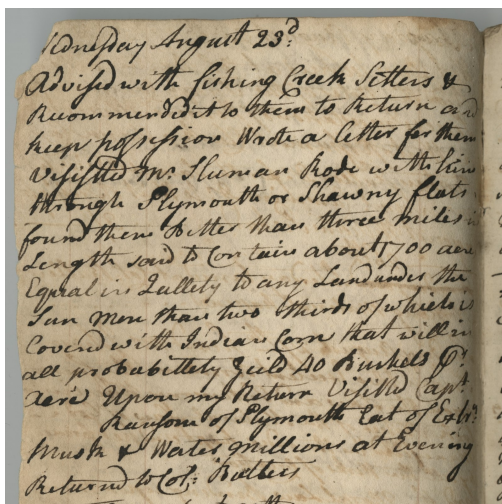 Wednesday August 23d:
Advised with fishing Creek Setters &
Recommended it to them to Return and
keep possession Wrote a letter for them
Visitted Mr Sluman Rode with him
through Plymouth or Shawny flats
found them better than three miles in
Length said to Contain about 1700 acre
Equal in Qullety to any Land under the
Sun More than two thirds of which is
Covered with Indian Corn that will in
all probabillety Yeild 40 Bushels Pr
acre Upon my Return Visitted Capt
Ransom of Plymouth Eat of Extr:
Mush & Water millions at Evening
Returned to Col: Butlers